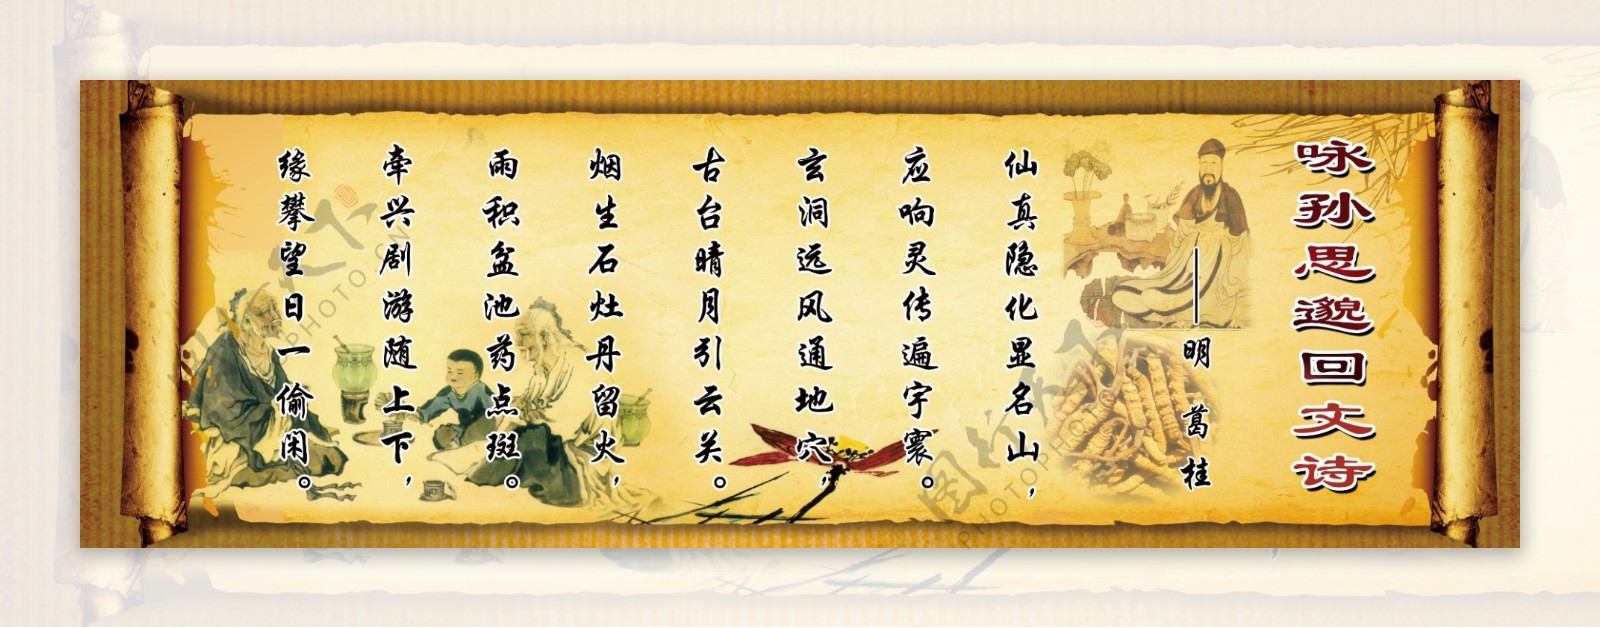 咏孙思邈回文诗
——明 葛桂
仙真隐化显名山，
应响灵传遍宇寰。
玄洞远风通地穴，
古台晴月引云关。
烟生石灶丹留火，
雨积盆池药点斑。
牵兴剧游随上下，
缘攀望日一偷闲。